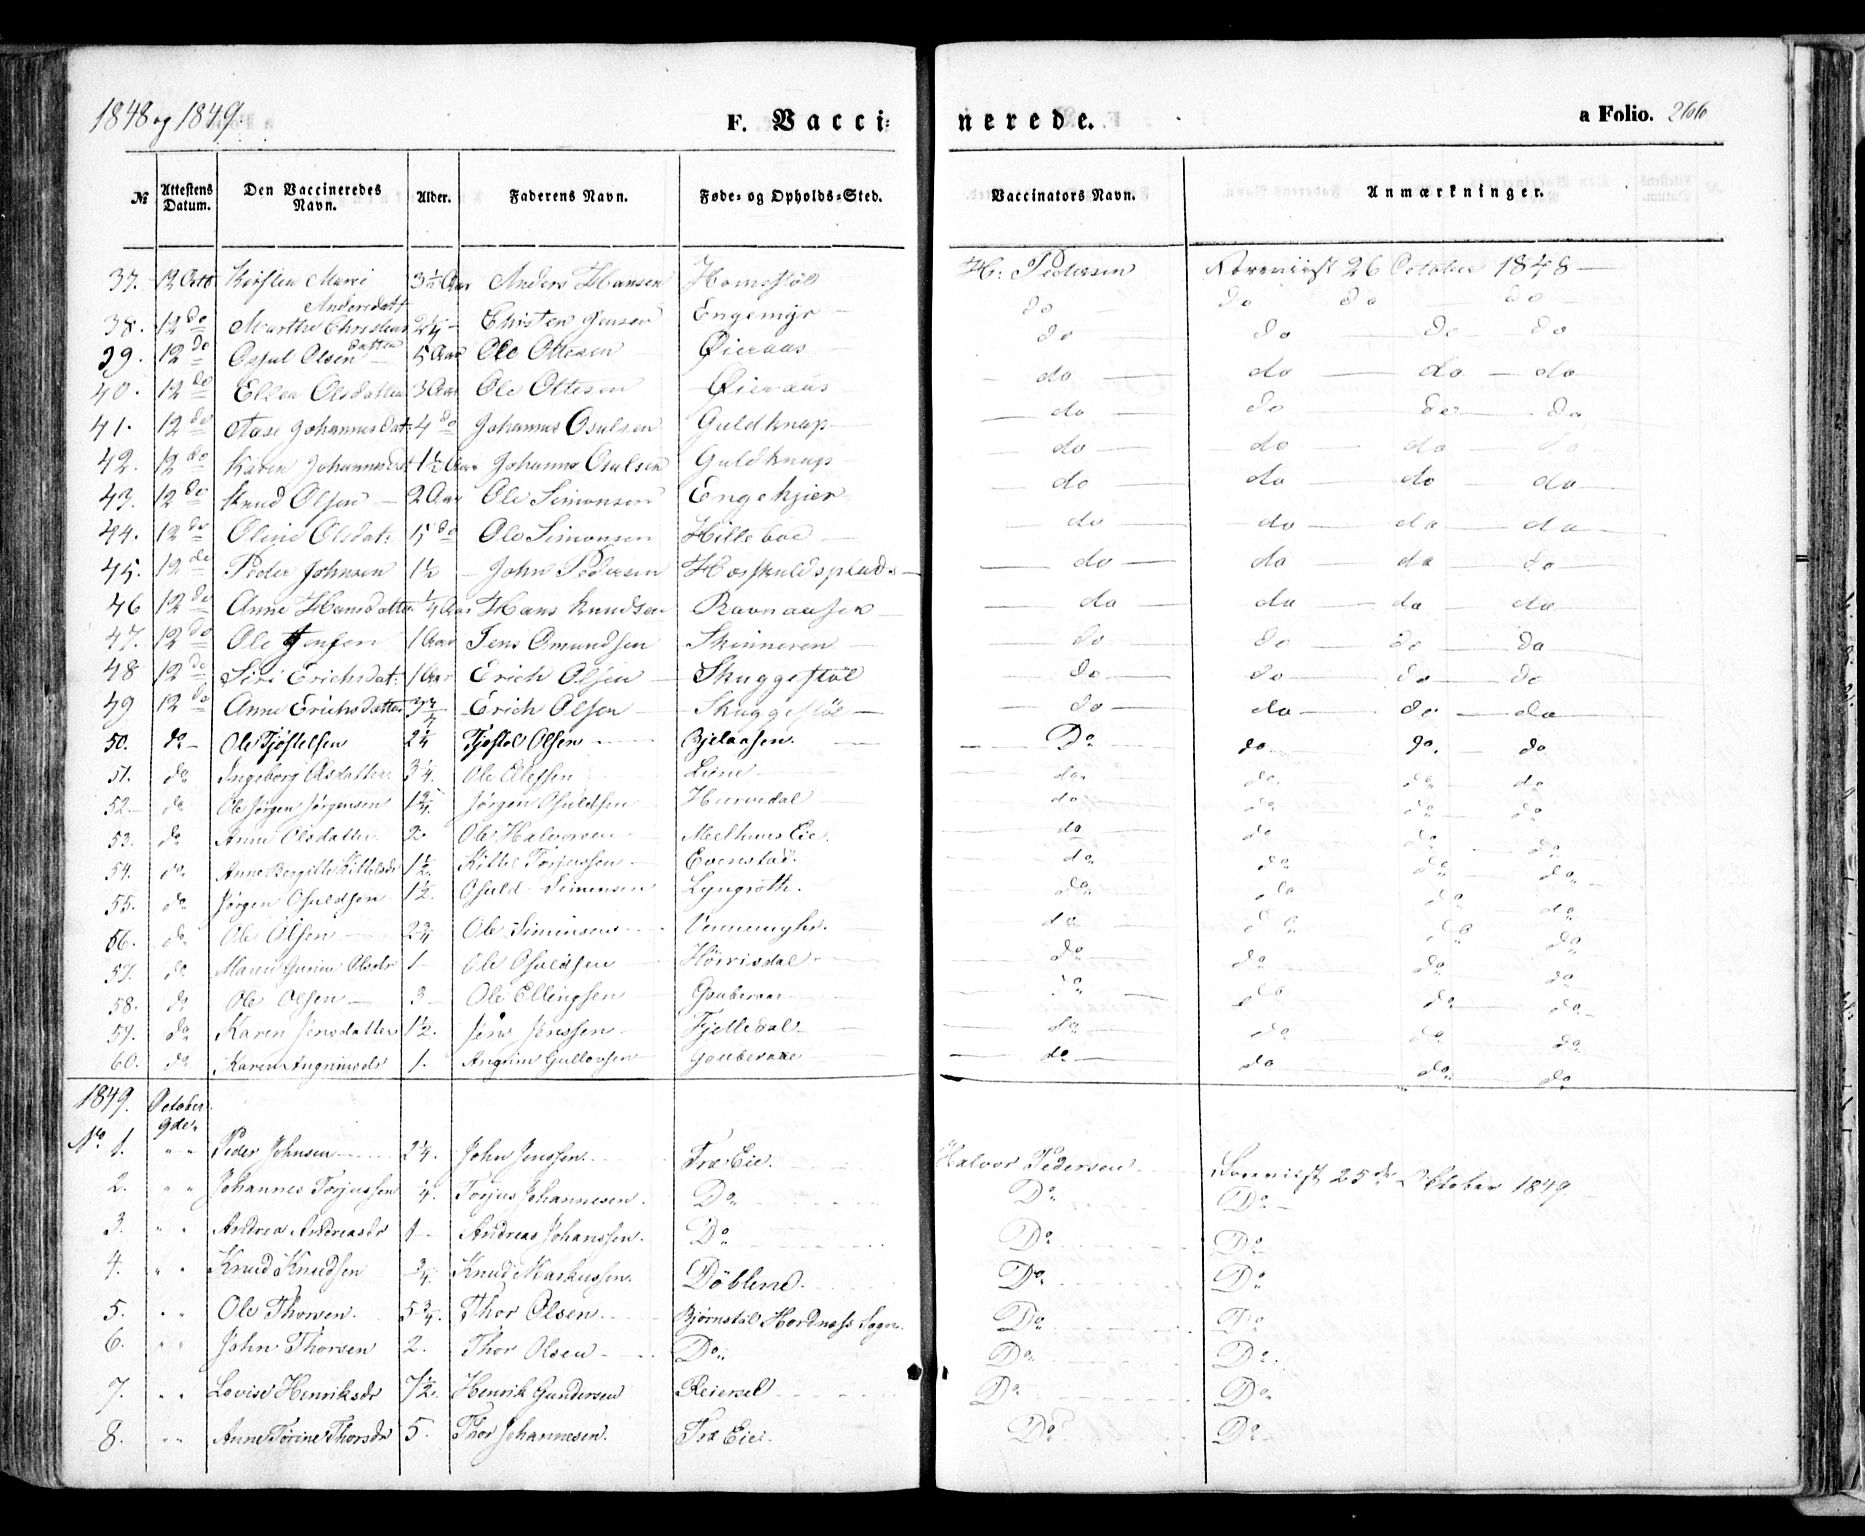 1848 og 1849.
F. Vaccinerede.
a Folio. 266
№ | Attestens Datum. | Den Vaccineredes Navn. | Alder. | Faderens Navn. | Føde- og Opholds-Sted. | Vaccinators Navn. | Anmærkninger.
37. 12 Octb Kirsten Marie Andersdatt 3½ Aar Anders Hansen Homstøl H: Pedersen Foreviist 26 October 1848
38. 12 do Marthe Christensdatter 2¼ Christen Jensen Engemyr do do do do
39. 12 do Osful Olsen 5 Aar Ole Ottesen Øieraas do do do do
40. 12 do Ellen Olsdatter 3 Aar Ole Ottesen Øieraas do do do do
41. 12 do Aase Johannesdat: 4 do Johannes Osulsen Guldknap do do do do
42. 12 do Karen Johannesdat 1½ Aar Johannes Osulsen Guldknap do do do do
43. 12 do Knud Olsen 2 Aar Ole Simonsen Engekjier do do do do
44. 12 do Oline Olsdat: 5 do Ole Simonsen Hilleboe do do do do
45. 12 do Peder Johnsen 1½ John Pedersen Hosskuldsplads do do do do
46 12 do Anne Hansdatter ¼ Aar Hans Knudsen Ravnaasen do do do do
47. 12 do Ole Jensen 1 Aar Jens Omundsen Skinneren do do do do
48 12 do Siri Erichsdat: 1 Aar Erich Olsen Skuggestøl do do do do
49 12 do Anne Erichsdatter 3¾ Erich Olsen Skuggestøl do do do do
50. do Ole Tjøstelsen 2¼ Tjøstel Olsen Bjelaasen. Do do do. do
51. do Ingeborg Olsdatter. 3¼. Ole Ellefsen Liene do do do do
52. do Ole Jørgen Jørgensen 1¾. Jørgen Osuldsen Hurvedal do do do do
53. do Anne Olsdatter 2 Ole Halvorsen Melhuus Eie do do do do
54. do Anne Bergitte Kittelsdr 1½. Kittel Torjussen Evenstad. do do do do
55. do Jørgen Osuldsen 1½. Osuld Simonsen Lyngroth. do do do do
56. do Ole Olsen 2¾ Ole Simonsen do do do do
57. do Maren Gurine Olsdr 1 Ole Osuldsen Höivisdal do do do do
58. do Ole Olsen 3 Ole Ellingsen Gouberaae do do do do
59. do Karen Jensdatter 1½. Jens Jenssen Fjelledal do do do do
60. do Karen Angrimsdr 1. Angrim Gullovsen Gouberaae do do do do
1849. October 9de.
No 1. " " Peder Johnsen 2¼. John Jenssen. Træ Eie. Halvor Pedersen Foreviist 25de Oktober 1849
2. " " Johannes Torjussen ¼. Torjus Johannesen. Do Do Do
3. " " Andrea Andreasdr 1 Andreas Johanssen. Do Do Do
4. " " Knud Knudsen ¾. Knud Markussen. Döblend. Do Do
5. " " Ole Thorsen. 5¾. Thor Olsen Bjørnstøl Hordnæss Sogn. Do Do
6. " " John Thorsen 2. Thor Olsen Do Do Do
7. " " Lovise Henriksdr 7½. Henrik Gundersen Reiersel Do Do
8. " " Anne Torine Thorsdr 5. Thor Johannesen. Træ Eie. Do Do